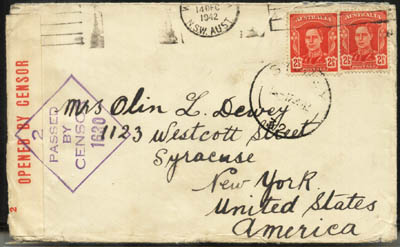 14 DEC
1942
N.S.W. AUST
AUSTRALIA
AUSTRALIA
2½
2½
OPENED BY CENSOR
2
2
PASSED
BY
CENSOR
1630
Mrs Olin L. Dewey
1123 Westcott Street
Syracuse
New York.
United States
America